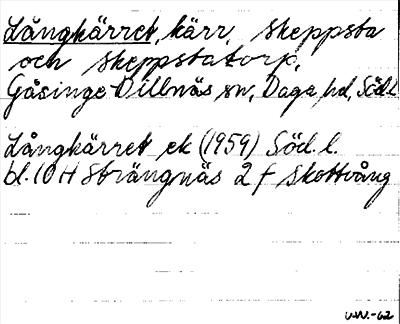 Långkärret, kärr, Skeppsta
och Skeppstatorp,
Gåsinge-Dillnäs sn, Daga hd, Södl.
Långkärret ek (1959) Söd. l.
bl. 10 H Strängnäs 2 f Skottvång
W.W.-62